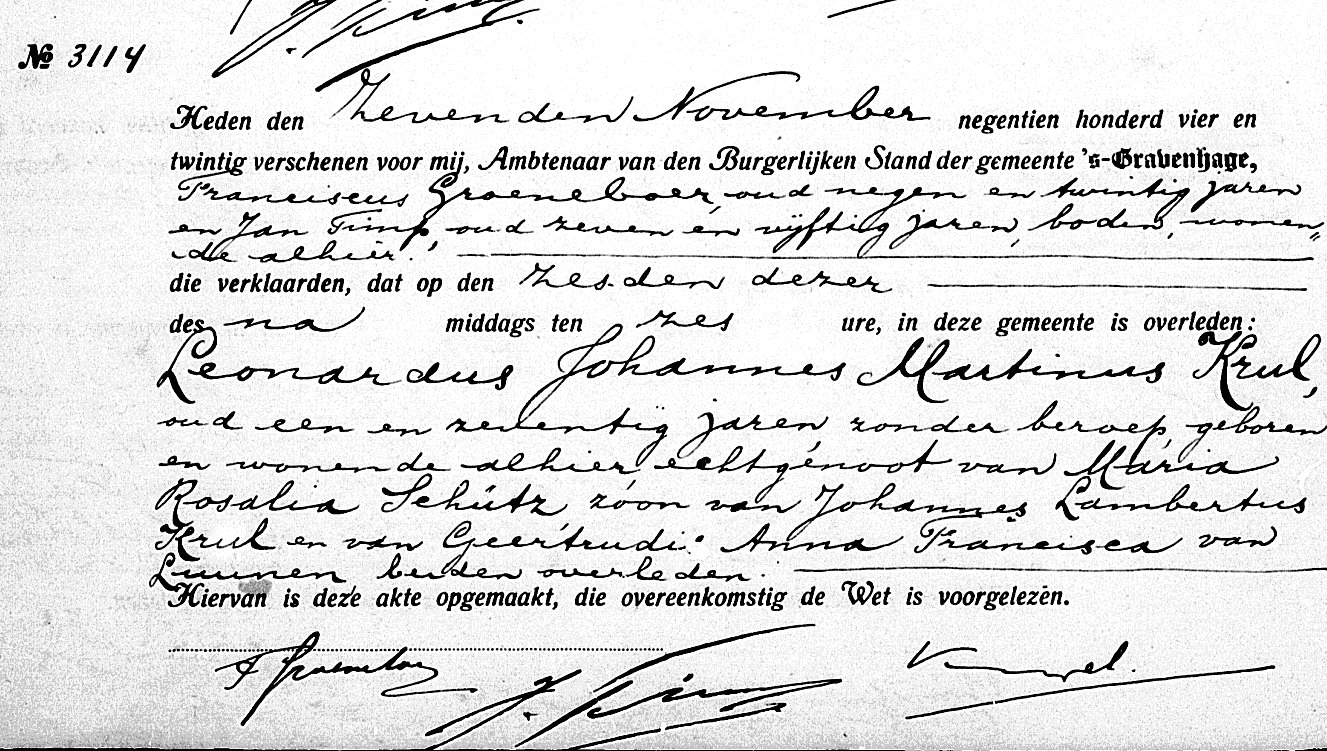 № 3114
Heden den zevenden November negentien honderd vier en
twintig verschenen voor mij, Ambtenaar van den Burgerlijken Stand der gemeente 's-Gravenhage,
Franciscus Groeneboer, oud negen en twintig jaren
en Jan Timp, oud zeven en vijftig jaren, boden, wonen„
de alhier.
die verklaarden, dat op den zesden dezer
des na middags ten zes ure, in deze gemeente is overleden:
Leonardus Johannes Martinus Krul,
oud een en zeventig jaren, zonder beroep, geboren
en wonende alhier, echtgenoot van Maria
Rosalia Schütz, zoon van Johannes Lambertus
Krul en van Geertrudis Anna Francisca van
Luunen beiden overleden.
Hiervan is deze akte opgemaakt, die overeenkomstig de Wet is voorgelezen.
F Groeneboer
J. Timp